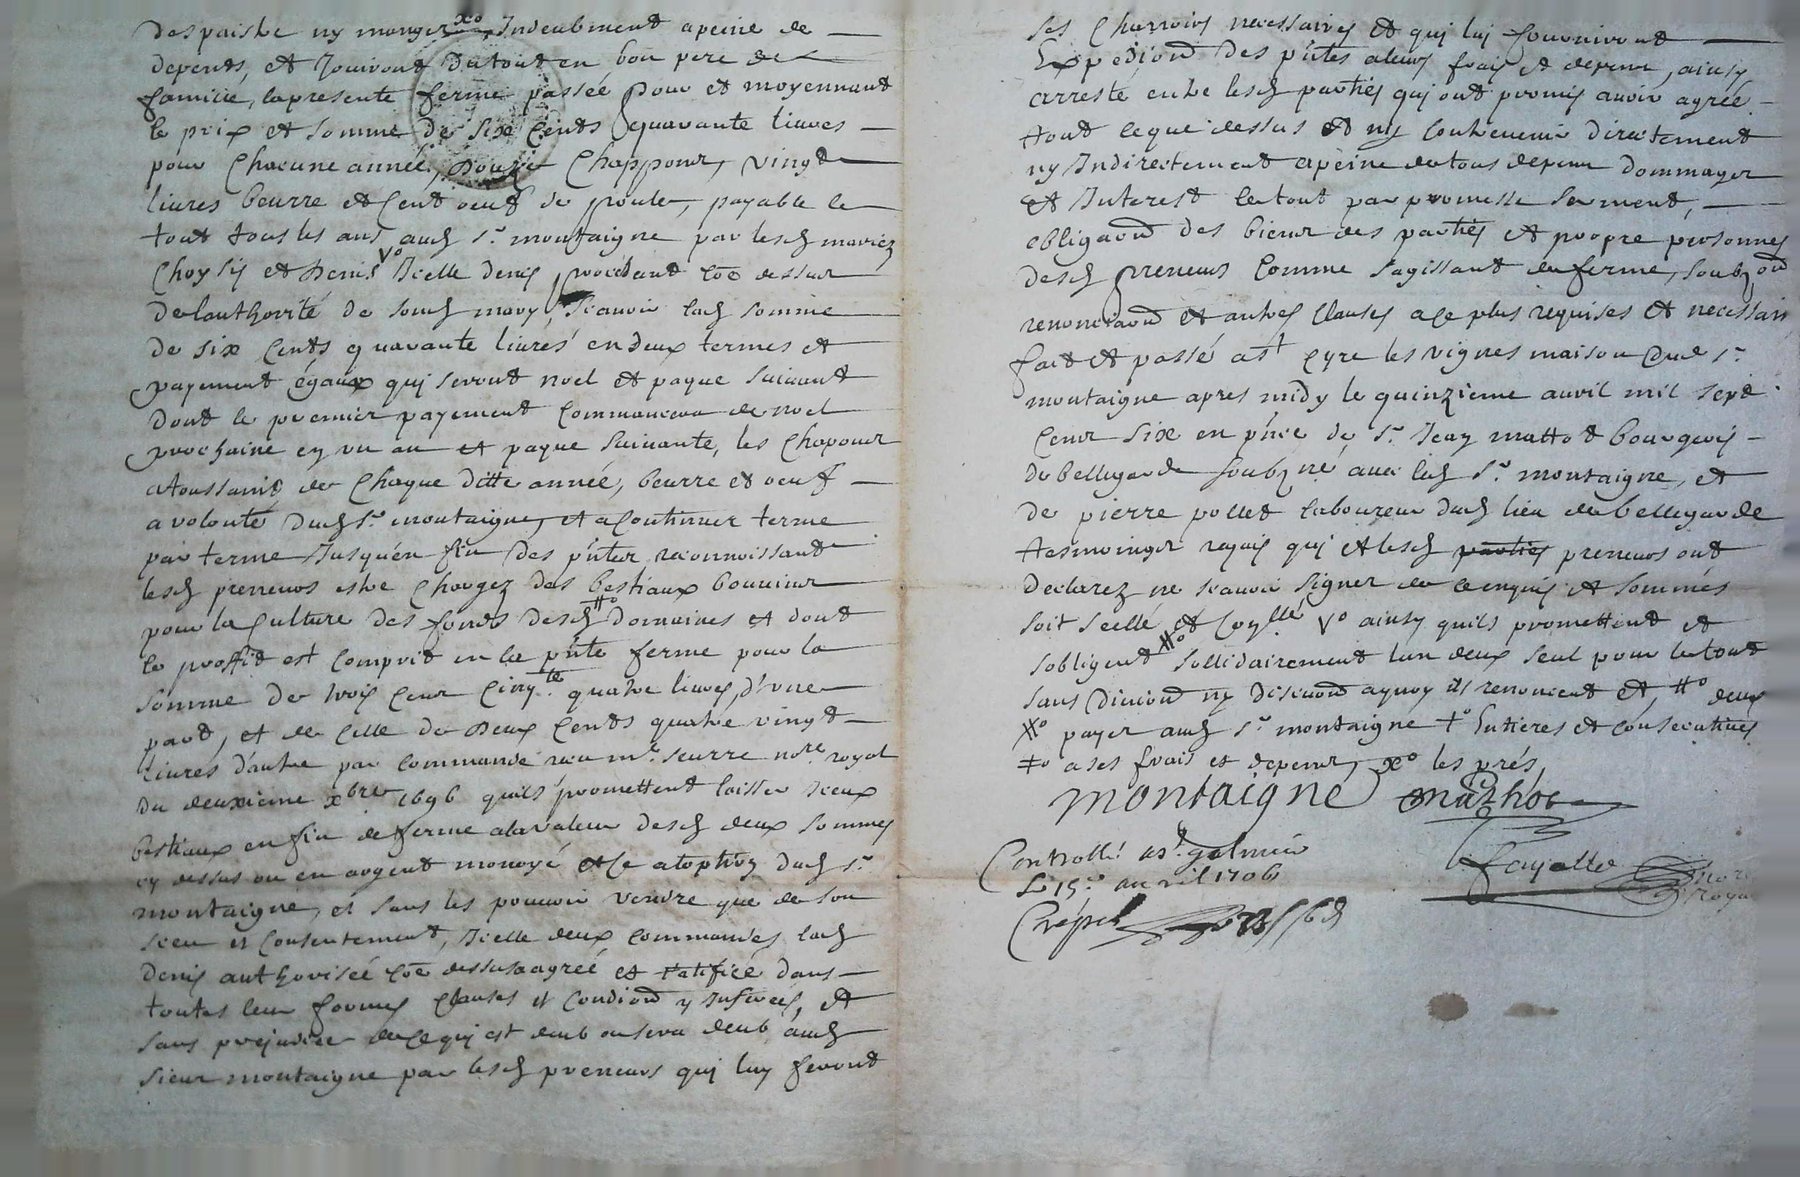 des paistre ny manger xo Indeubment apeine de
depents, et Jouiront du tout en bon pere de
famille, la presente ferme passée pour et moyennant
le prix et somme de six Cents quarante liures
pour Chacune année, Douze Chappons, vingt
liures beurre et Cent oeufs de poules, payable le
tout tous les ans aud sr. montaigne par lesd mariez
Choysis et Denis vo Icelle denis procedant coe dessus
de lauthorité de sond mary, Scauoir lad somme
de six Cents quarante liures en deux termes et
payement égaux quj seront noel et paque suiuant
Dont le premier payement Commancera de noel
prochaine en vn an et paque suiuante, les Chapons
a toussaint de Chaque ditte année, beurre et oeufs
a volonté dud sr. montaigne, et a Continuer terme
par terme Jusqu'en fin des pntes, reconnoissant
lesd preneurs estre Chargez des bestiaux bouuine
pour la Culture des fonds desd Ho Domaines et dont
le proffit est Compris en la pnte ferme pour la
somme de trois Cens Cinqte. quatre liures, d'vne
part, et de Celle de Deux Cents quatre vingt
liures d'autre par Commande receu me. seurre nore. royal
du deuxieme xbre 1696 quils promettent laisser Iceux
bestiaux en fin de ferme a la valeur desd deux sommes
cy dessus ou en argent monoyé et Ce a loption dud sr.
montaigne, et sans les pouuoir vendre que de son
sceu et Consentement, Icelle deux Commandes lad
Denis authorisée Coe dessus a agréé et ratifiée dans
toutes leur formes Clauses et Condions y Inserées, et
sans prejudice de Ce quj est deub ou sera deub aud
sieur montaigne par lesd preneurs quj luy feront
les Charrois necessaires et quj luj Conuiuront
Expedions des pntes a leurs frais et depens, ainsy
arresté entre lesd parties quj ont promis auoir agréé
tout ce que dessus et ny Contreuenir directement
ny Indirectement apeine de tous depens Dommages
et Interest le tout par promesse serment,
obligaon des biens des parties et propre personnes
desd preneurs Comme sagissant de ferme, soubzon
renonciaon et autres Clauses a Ce plus requises et necessair
fait et passé a st Cyre les vignes maison dud sr.
montaigne apres midy le quinzieme auril mil sept
Cens six en pnce de sr. Jean mattot bourgeois
de bellegarde soubzné auec led sr. montaigne, et
de pierre pollet laboureur dud lieu de bellegarde
tesmoings requis quj et lesd parties preneurs ont
declarez ne scauoir signer de ce enquis et sommés
soit scellé et Conllé vo ainsy quils promettent et
sobligent Ho sollidairement lun deux seul pour le tout
sans Diuion ny discuion a quoy ils renoncent et, Ho deux
xo payer aud sr. montaigne to Entieres et consecutiues
to a ses frais et depens, xo les prés
montaigne mathot
Controllé a st. galmier fayolle nore
Le 15e. auril 1706 Roya
Crépet